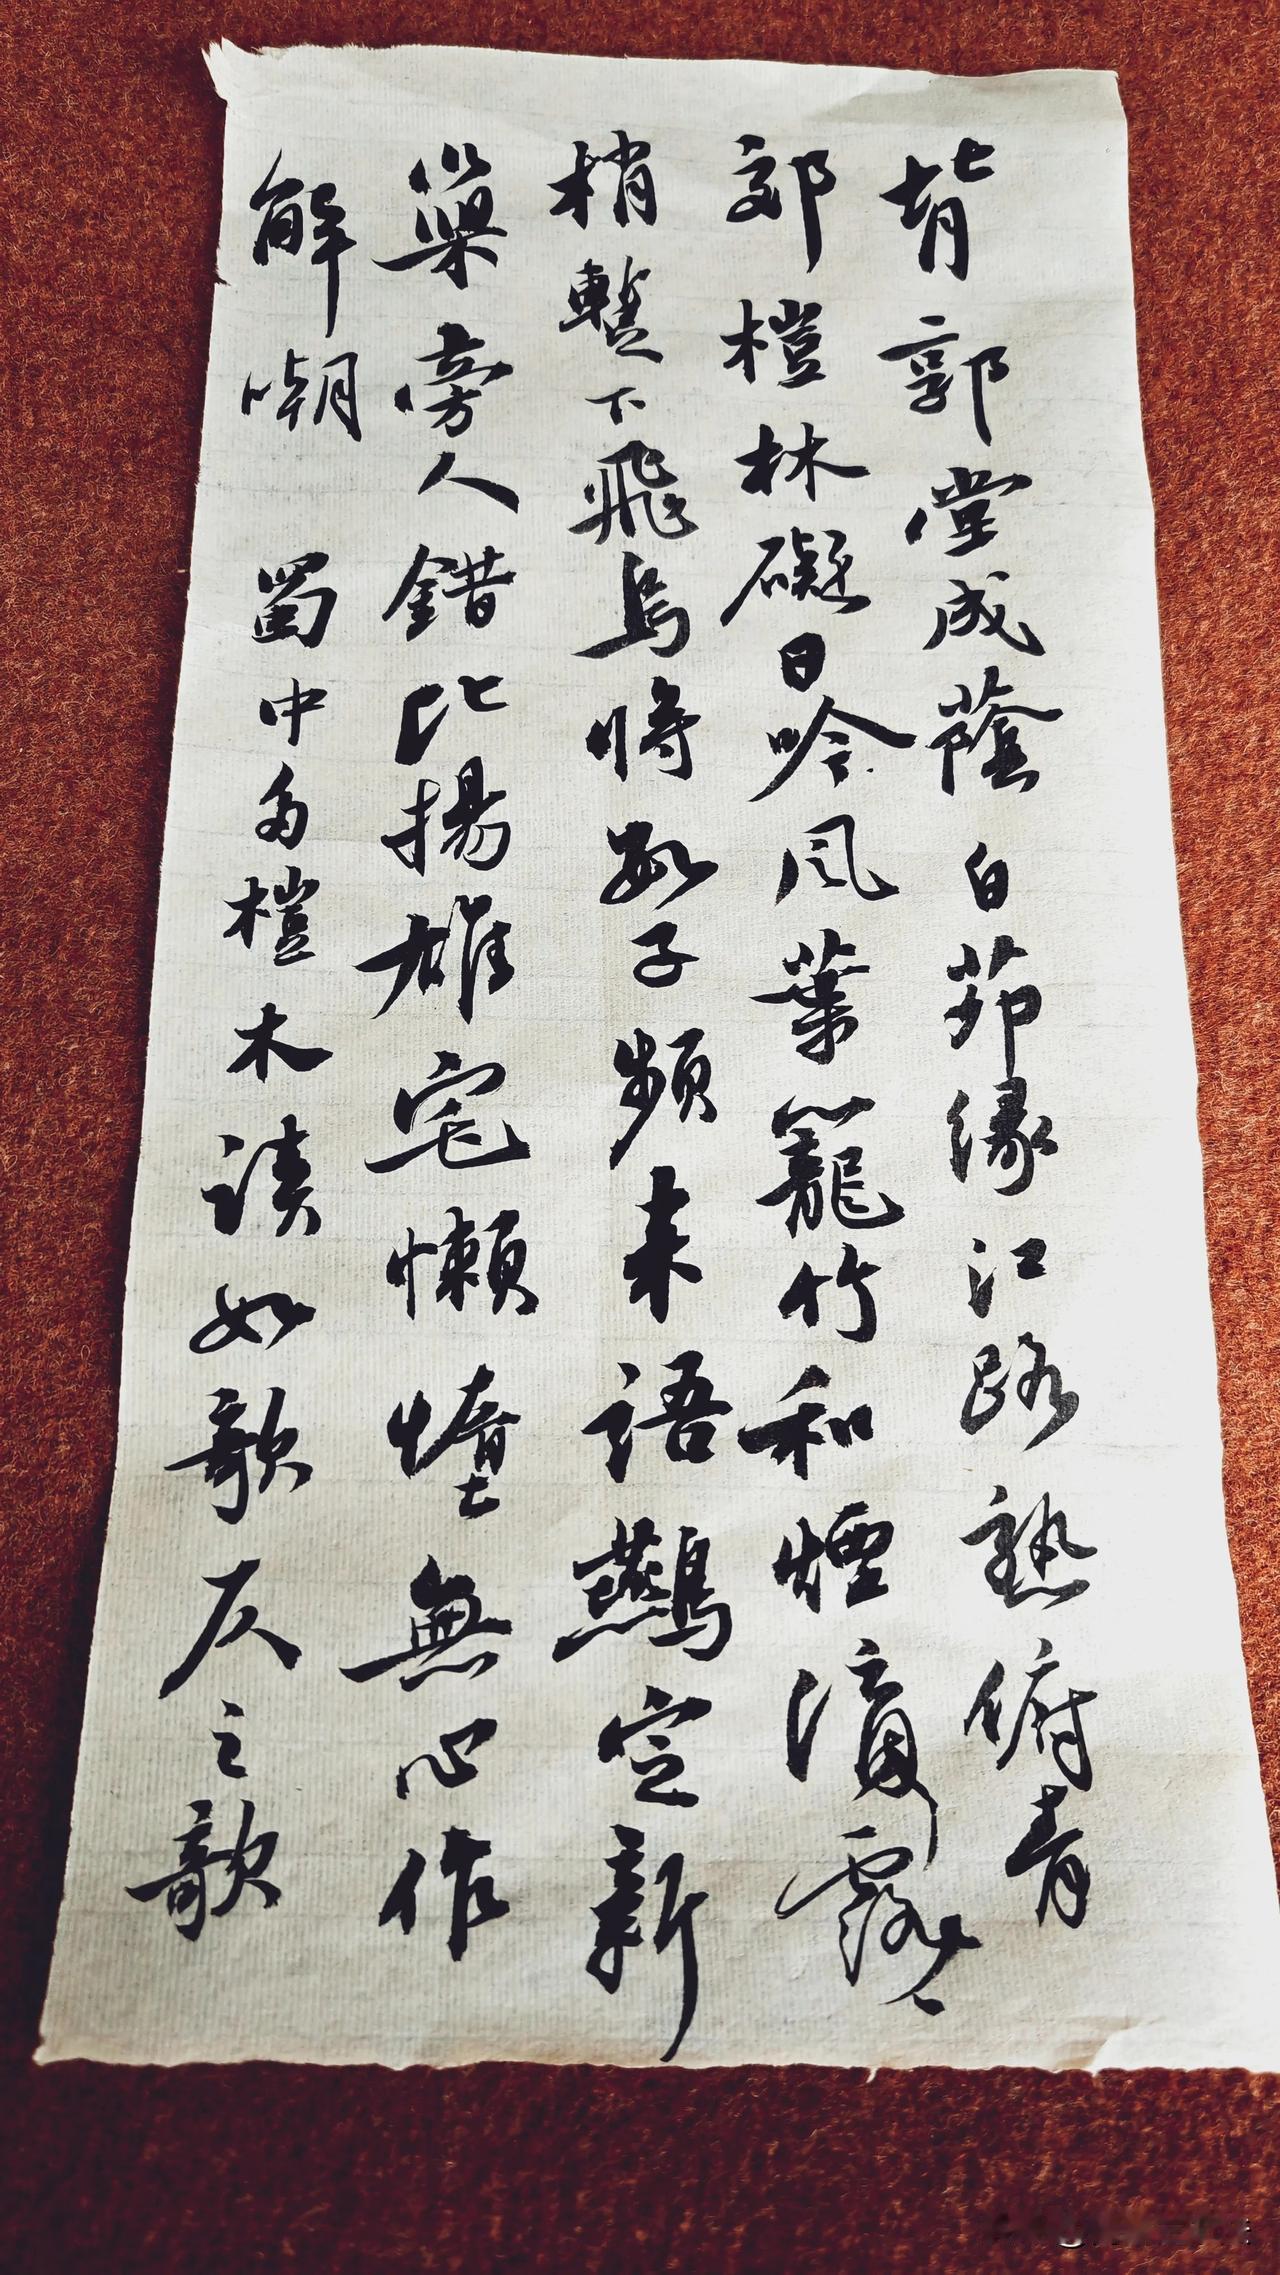 背郭堂成蔭白茆緣江路熟俯青
郊榿林礙日吟風葉籠竹和煙滴露
梢暫下飛烏將數子頻來語鷰定新
巢旁人錯比揚雄宅懶墮無心作
解嘲 蜀中多榿木讀如欹仄之欹